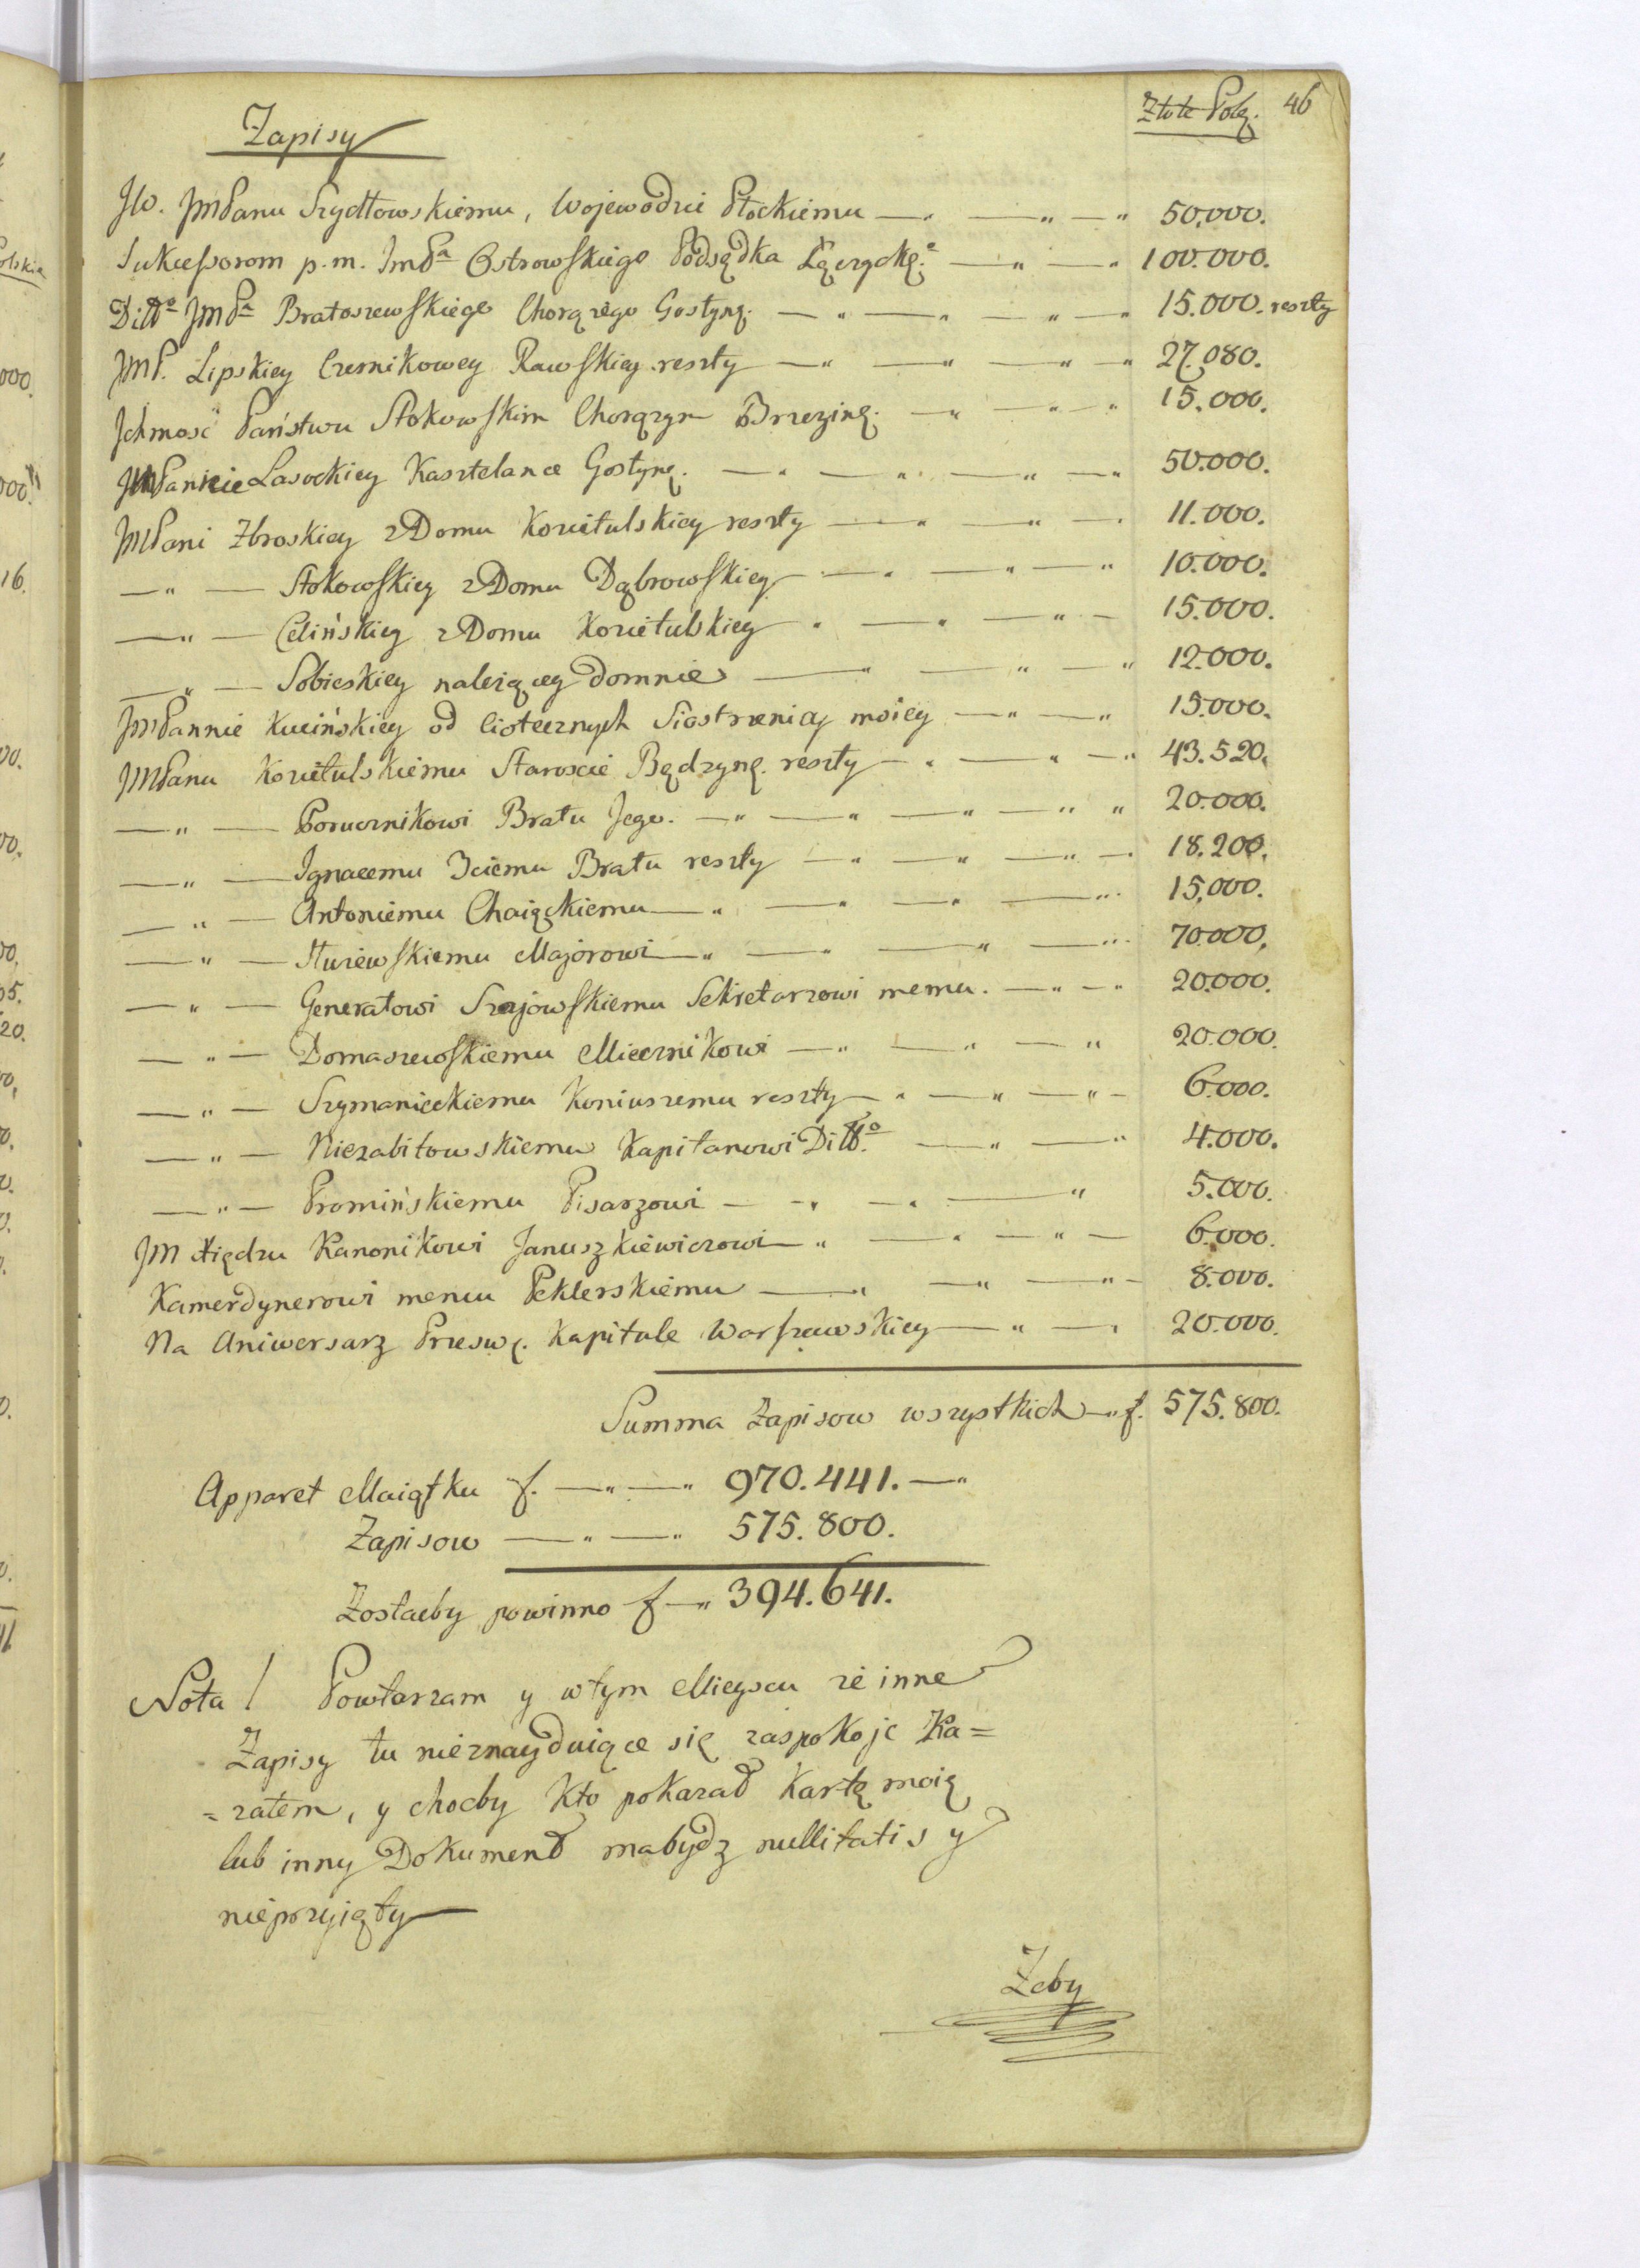 Złote Polę. 46
Zapisy
JW. JmPanu Szydłowskiemu, Wojewodzie Płockiemu —„ —„ —„ 50.000.
Sukcessorom p.m. ImPa Ostrowskiego Podsędka Łęczyckęo —„ —„ 100.000.
Ditto JmPa Bratoszewskiego Chorążego Gostynę. —„ —„ —„ —„ 15.000. reszty
JmP. Lipskiey Cześnikowey Rawskiey reszty —„ —„ —„ „ 27.080.
Jchmość Państwu Stokowskim Chorążym Brzezinę. —„ —„ —„ 15.000.
JmPannie Lasockiey Kasztelance Gostynę. —„ —„ —„ —„ 50.000.
JmPani Zbroskiey z Domu Kozietulskiey reszty —„ —„ —. 11.000.
—„— Stokowskiey z Domu Dąbrowskiey —„ —„ —„ 10.000.
—„— Celińskiey z Domu Kozietulskiey „ —„ —„ — 15.000.
—„— Sobieskiey należącey do mnie —„ —„ —„ 12.000.
JmPannie Kucińskiey od Ciotecznych Siostrzenicy moiey —„ —„ 15.000.
JmPanu Kozietulskiemu Staroscie Będzynę. reszty —„ —„ —„ 43.520.
—„— Porucznikowi Bratu Jego. —„ —„ —„ —„ „ 20.000.
—„— Ignacemu 3ciemu Bratu reszty —„ —„ —„ —. 18.200.
—„— Antoniemu Chaięckiemu —„ —„ —„ —„ 15.000.
—„— Majorowi —„ —„ —„ —„ 70.000.
—„— Generałowi Szajowskiemu Sekretarzowi memu. —„ —„ 20.000.
—„— Domaszewskiemu Miecznikowi —„ —„ —„ 20.000.
—„— Szymanieckiemu Koniuszemu reszty —„ —„ —„ — 6.000.
—„— Niezabitowskiemu Kapitanowi Ditto. —„ —„ 4.000.
—„— Promińskiemu Pisarzowi — —„ —„ —„ 5.000.
Jm Xiędzu Kanonikowi Januszkiewiczowi —„ —„ —„ — 6.000.
Kamerdynerowi memu Peklerskiemu —„ —„ —„ — 8.000.
Na Aniwersarz Przeswę. Kapitule Warszawskiey —„ —„ 20.000.
Summa Zapisow wszystkich —„ f. 575.800.
Apparet Maiątku f. —„ —„ 970.441. —„
Zapisow —„ —„ 575.800.
Zostaćby powinno f —„ 394.641.
Nota! Powtarzam y w tym Mieyscu że inne
Zapisy tu nieznayduiące się zaspokoję Ka=
=załem, y choćby kto pokazał Kartę moię
lub inny Dokument ma bydz nullitatis y
nieprzyięty —
Żeby